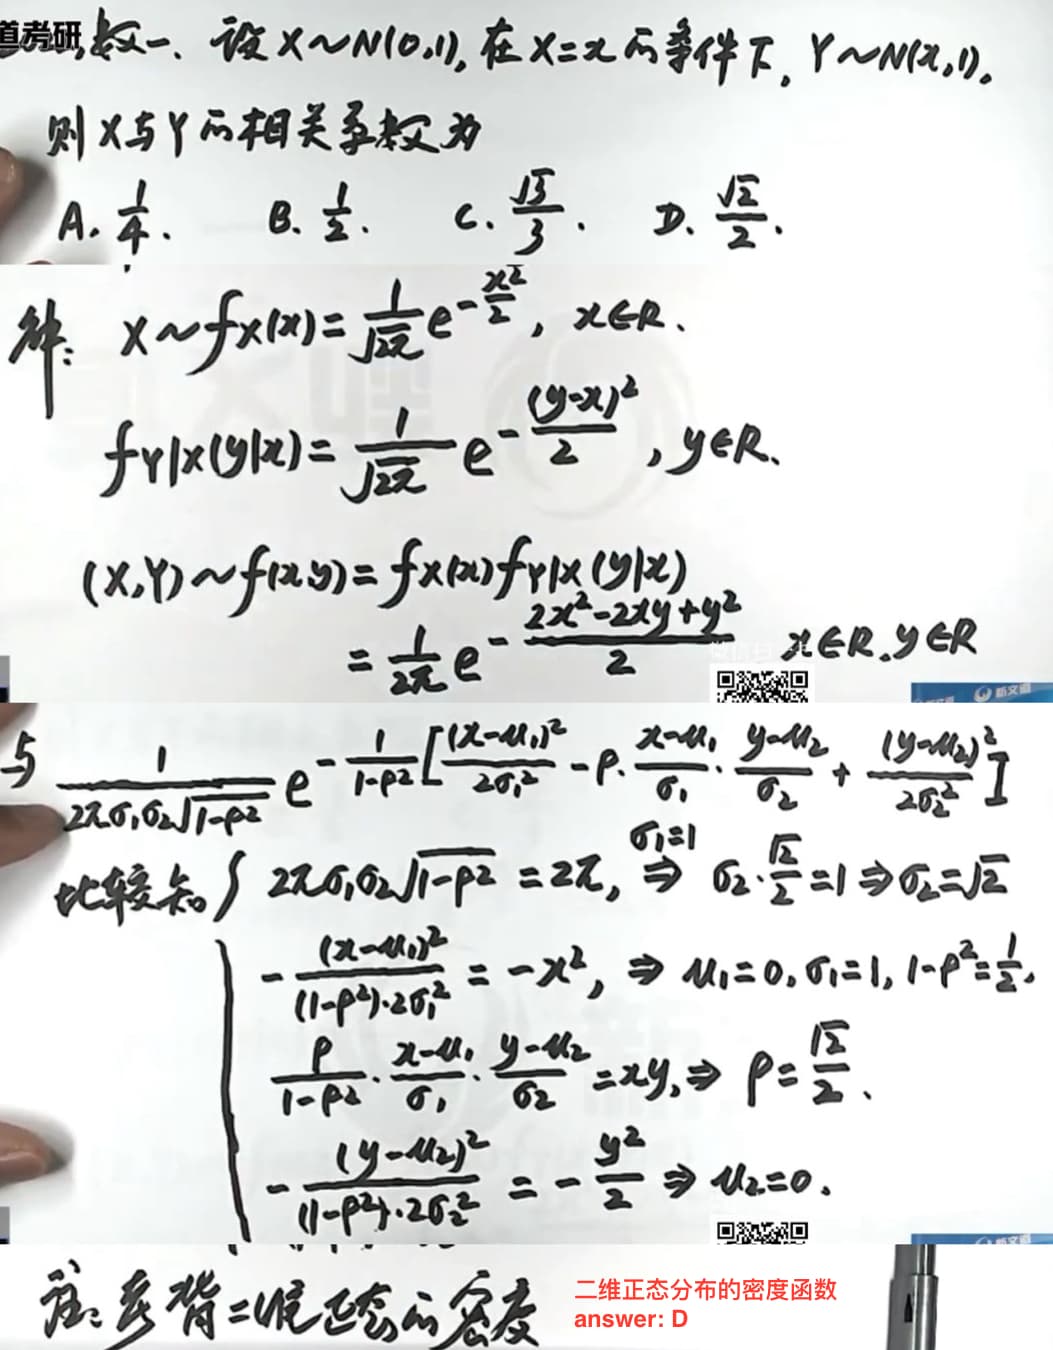 道考研
数一、设X~N(0,1),在X=x的条件下,Y~N(x,1)。
则X与Y的相关系数为
A. 1/4. B. 1/2. C. √3/3. D. √2/2.
解: X~fX(x)=1/√2π e^(-x²/2), x∈R.
fY|X(y|x)=1/√2π e^(-(y-x)²/2), y∈R.
(X,Y)~f(x,y)=fX(x)fY|X(y|x)
=1/2π e^(-(2x²-2xy+y²)/2) x∈R,y∈R
新文道
与 1/(2πσ₁σ₂√(1-ρ²)) e^(-1/(1-ρ²)[(x-μ₁)²/2σ₁² - ρ·(x-μ₁)/σ₁·(y-μ₂)/σ₂ + (y-μ₂)²/2σ₂²])
比较知{ 2πσ₁σ₂√(1-ρ²)=2π, σ₁=1⇒ σ₂·√2/2=1⇒σ₂=√2
-(x-μ₁)²/((1-ρ²)·2σ₁²)=-x², ⇒ μ₁=0,σ₁=1, 1-ρ²=1/2.
ρ/(1-ρ²)·(x-μ₁)/σ₁·(y-μ₂)/σ₂=xy,⇒ ρ=√2/2.
-(y-μ₂)²/((1-ρ²)·2σ₂²)=-y²/2 ⇒ μ₂=0.
注:要背二维正态的密度
二维正态分布的密度函数
answer: D